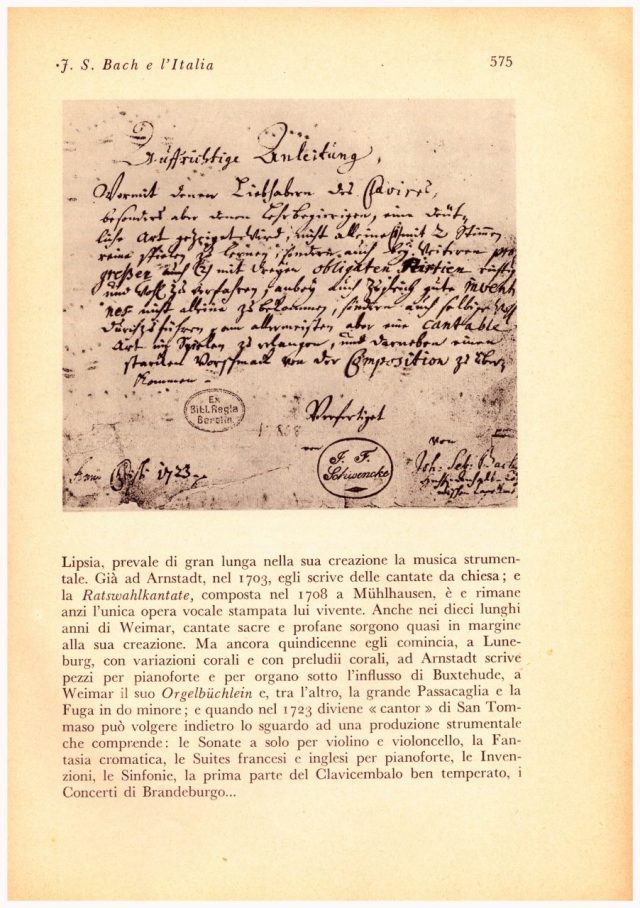 J. S. Bach e l'Italia
575
Auffrichtige Anleitung,
Wormit denen Liebhabern des Clavires,
besonders aber denen Lehrbegierigen, eine deüt-
liche Art gezeiget wird, nicht alleine mit 2 Stimmen
reine spielen zu lernen, sondern auch bey weiteren pro
greßen auch mit dreyen obligaten Partien richtig
und wohl zu verfahren, anbey auch zugleich gute inventi
ones nicht alleine zu bekommen, sondern auch selbige wohl
durchzuführen, am allermeisten aber eine cantable
Art im Spielen zu erlangen, und darneben einen
starcken Vorschmack von der Composition zu über
kommen.
Ex
Bibl. Regia
Berolin.
Verfertiget
von
J. F.
Schwencke
Anno Christi 1723.
Joh. Seb. Bach
Lipsia, prevale di gran lunga nella sua creazione la musica strumen-
tale. Già ad Arnstadt, nel 1703, egli scrive delle cantate da chiesa; e
la Ratswahlkantate, composta nel 1708 a Mühlhausen, è e rimane
anzi l'unica opera vocale stampata lui vivente. Anche nei dieci lunghi
anni di Weimar, cantate sacre e profane sorgono quasi in margine
alla sua creazione. Ma ancora quindicenne egli comincia, a Lune-
burg, con variazioni corali e con preludii corali, ad Arnstadt scrive
pezzi per pianoforte e per organo sotto l'influsso di Buxtehude, a
Weimar il suo Orgelbüchlein e, tra l'altro, la grande Passacaglia e la
Fuga in do minore; e quando nel 1723 diviene « cantor » di San Tom-
maso può volgere indietro lo sguardo ad una produzione strumentale
che comprende: le Sonate a solo per violino e violoncello, la Fan-
tasia cromatica, le Suites francesi e inglesi per pianoforte, le Inven-
zioni, le Sinfonie, la prima parte del Clavicembalo ben temperato, i
Concerti di Brandeburgo...